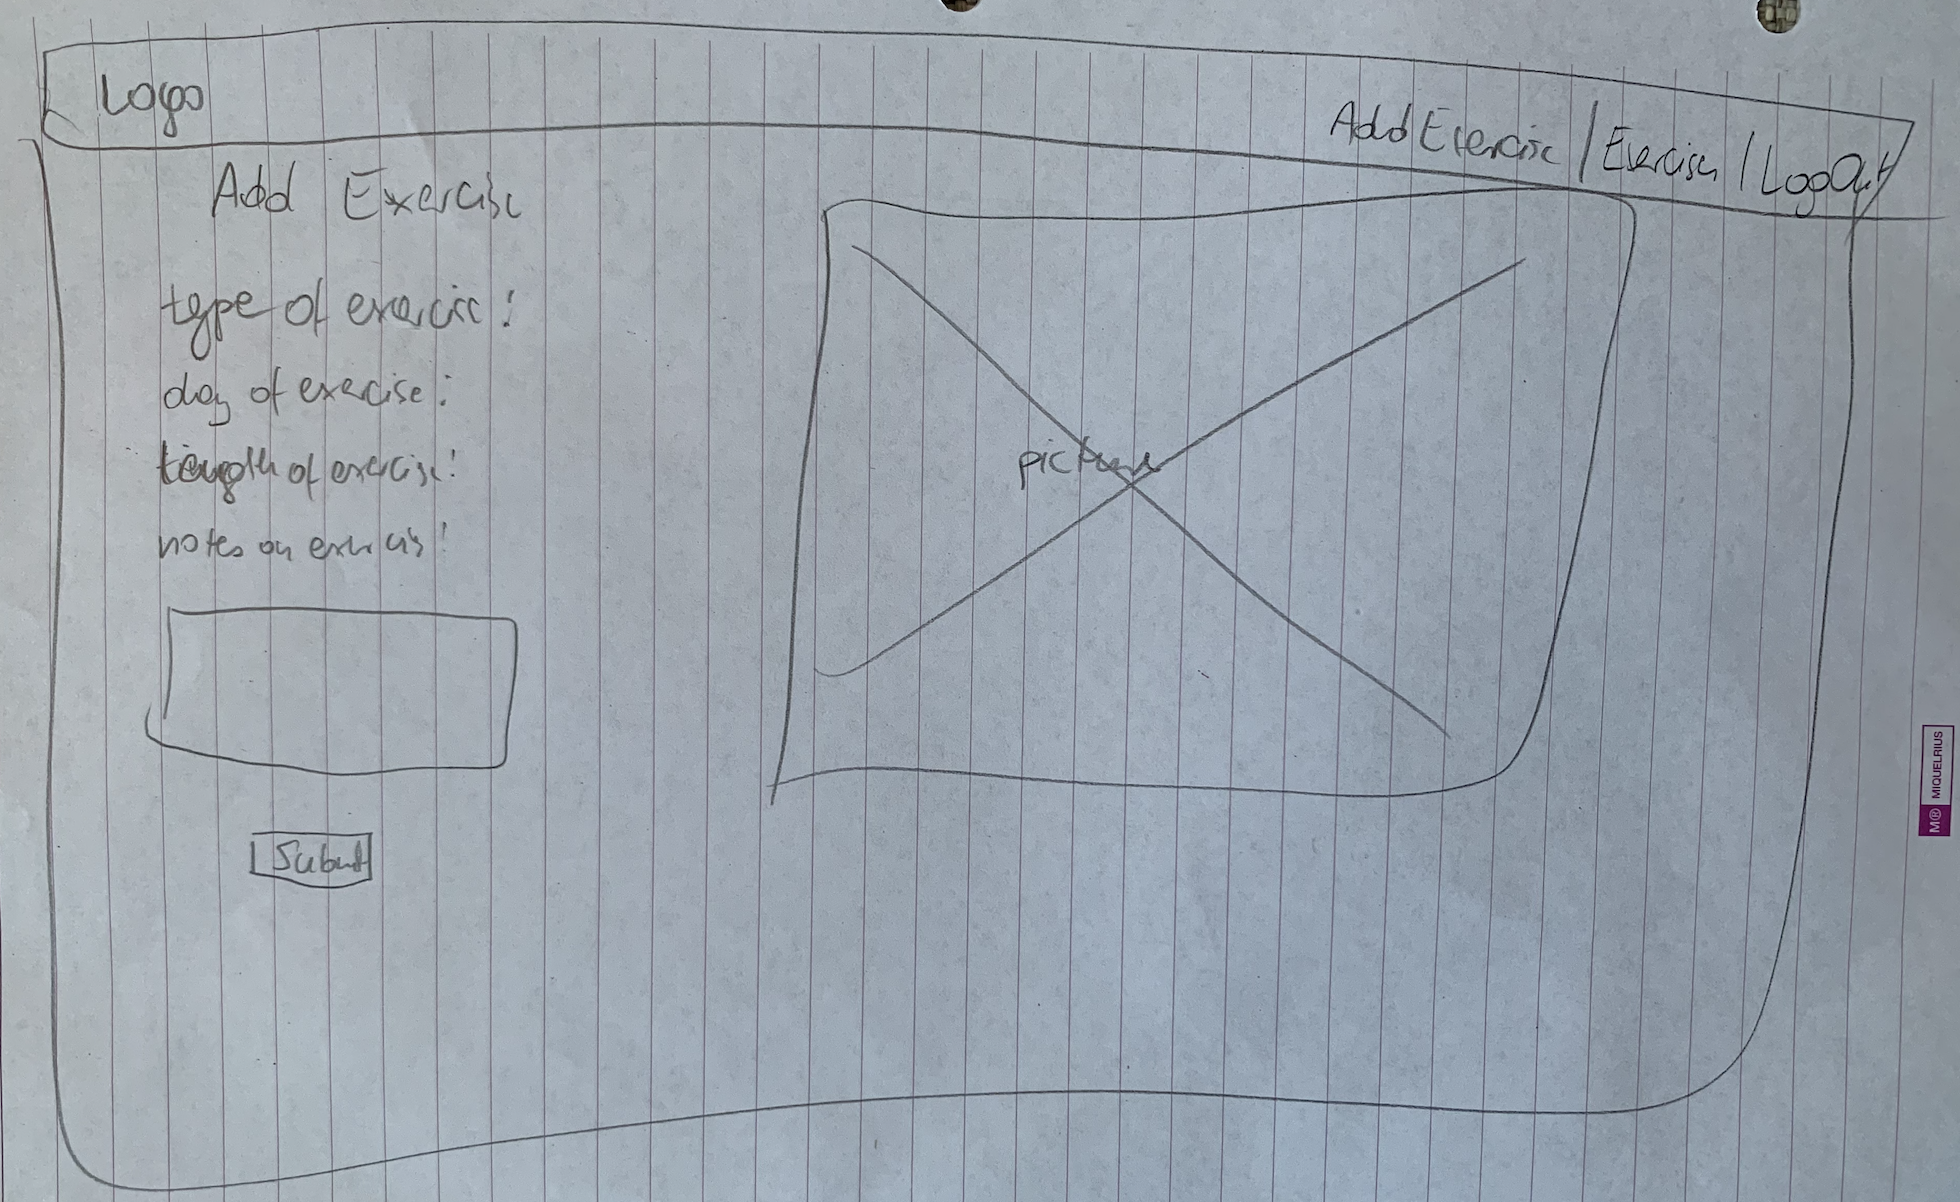 Logo
Add Exercise | Exercises | LogOut
Add Exercise
type of exercise:
day of exercise:
length of exercise:
notes on exercis:
picture
Submit
M® MIQUELRIUS